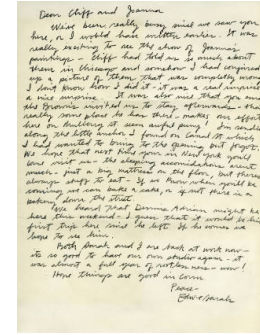 Dear Cliff and Joanna
We've been really busy since we saw you
here, or I would have written earlier. It was
really exciting to see the show of Joanna's
paintings - Cliff had told us so much about
them in Chicago and somehow I had conjured
up a picture of them that was completely wrong
I don't know how I did it - it was a real surprise
a nice surprise. It was also nice that you and
the Browns invited us to stay afterwards - the
really some place he has there - makes our effort
here on seem awful puny. I'm sending
along the little anchor I found on Canal St which
I had wanted to bring to the opening but forgot.
We hope that next time you're in New York you'll
come visit us - the sleeping accommodations aren't
much - just a big mattress on the floor, but there's
always stuff to eat - If we know when you'll be
coming we can bake a cake, or if not there is a
bakery down the street.
We heard that Dennis Adrian might be
here this weekend - I guess that would be his
first trip here since he left. If he comes we
hope to see him.
Both Sarah and I are back at work now -
its so good to have our own studio again - it
was almost a full year of restlessness - wow!
Hope things are good in
Peace -
Edw & Sarah